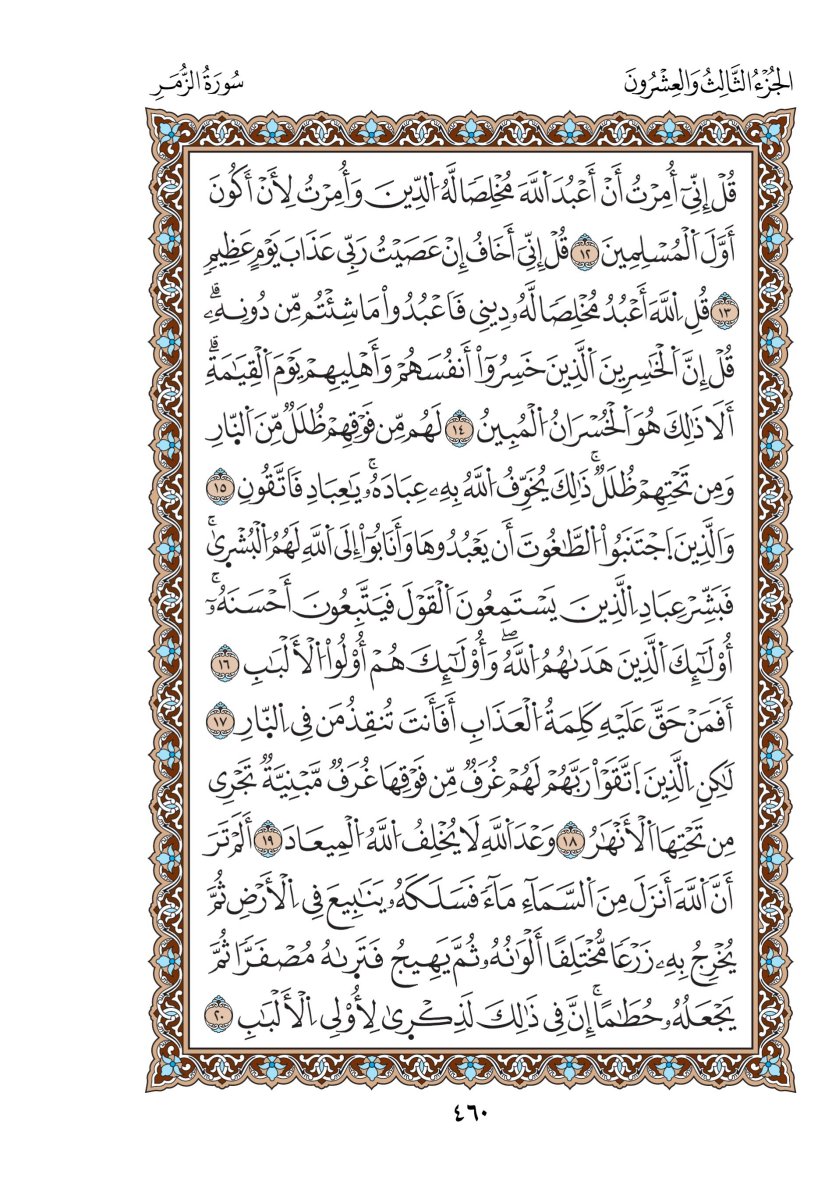 الجُزْءُ الثَّالِثُ وَالعِشْرُونَ
سُورَةُ الزُّمَرِ
قُلْ إِنِّيٓ أُمِرْتُ أَنْ أَعْبُدَ اَللَّهَ مُخْلِصًا لَّهُ اُلدِّينَ وَأُمِرْتُ لِأَنْ أَكُونَ
أَوَّلَ اَلْمُسْلِمِينَ ١٢ قُلْ إِنِّيَ أَخَافُ إِنْ عَصَيْتُ رَبِّي عَذَابَ يَوْمٍ عَظِيمٍ
١٣ قُلِ اِللَّهَ أَعْبُدُ مُخْلِصًا لَّهُۥ دِينِي فَاَعْبُدُواْ مَا شِئْتُم مِّن دُونِهِۦۗ
قُلْ إِنَّ اَلْخَٰسِرِينَ اَلَّذِينَ خَسِرُوٓاْ أَنفُسَهُمْ وَأَهْلِيهِمْ يَوْمَ اَلْقِيَٰمَةِۗ
أَلَا ذَٰلِكَ هُوَ اَلْخُسْرَانُ اُلْمُبِينُ ١٤ لَهُم مِّن فَوْقِهِمْ ظُلَلٌ مِّنَ اَلنَّارِ
وَمِن تَحْتِهِمْ ظُلَلٌۚ ذَٰلِكَ يُخَوِّفُ اُللَّهُ بِهِۦ عِبَادَهُۥۚ يَٰعِبَادِ فَاَتَّقُونِ ١٥
وَالَّذِينَ اَجْتَنَبُواْ اُلطَّٰغُوتَ أَن يَعْبُدُوهَا وَأَنَابُوٓاْ إِلَى اَللَّهِ لَهُمُ اُلْبُشْر۪ىٰۚ
فَبَشِّرْ عِبَادِ اِلَّذِينَ يَسْتَمِعُونَ اَلْقَوْلَ فَيَتَّبِعُونَ أَحْسَنَهُۥٓۚ
أُوْلَٰٓئِكَ اَلَّذِينَ هَدَىٰهُمُ اُللَّهُۖ وَأُوْلَٰٓئِكَ هُمْ أُوْلُواْ اُلْأَلْبَٰبِ ١٦
أَفَمَنْ حَقَّ عَلَيْهِ كَلِمَةُ اُلْعَذَابِ أَفَأَنتَ تُنقِذُ مَن فِي اِلنَّارِ ١٧
لَٰكِنِ اِلَّذِينَ اَتَّقَوْاْ رَبَّهُمْ لَهُمْ غُرَفٌ مِّن فَوْقِهَا غُرَفٌ مَّبْنِيَّةٌ تَجْرِي
مِن تَحْتِهَا اَلْأَنْهَٰرُ ١٨ وَعْدَ اَللَّهِ لَا يُخْلِفُ اُللَّهُ اُلْمِيعَادَ ١٩ أَلَمْ تَرَ
أَنَّ اَللَّهَ أَنزَلَ مِنَ اَلسَّمَآءِ مَآءً فَسَلَكَهُۥ يَنَٰبِيعَ فِي اِلْأَرْضِ ثُمَّ
يُخْرِجُ بِهِۦ زَرْعًا مُّخْتَلِفًا أَلْوَٰنُهُۥ ثُمَّ يَهِيجُ فَتَر۪ىٰهُ مُصْفَرًّا ثُمَّ
يَجْعَلُهُۥ حُطَٰمًاۚ إِنَّ فِي ذَٰلِكَ لَذِكْر۪ىٰ لِأُوْلِي اِلْأَلْبَٰبِ ٢٠
٤٦٠